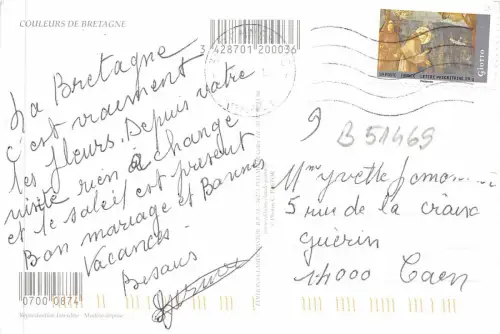 COULEURS DE BRETAGNE
3 428701 200036
La Bretagne
C'est vraiment
les fleurs. Depuis votre
visite rien à change
et le soleil est présent
Bon mariage et Bonnes
Vacances.
Bisous
0700 0874
Reproduction interdite
LA POSTE FRANCE LETTRE PRIORITAIRE 20 g
Giotto
B 51469
Mme Yvette
5 rue de la croix
guérin
14000 Caen